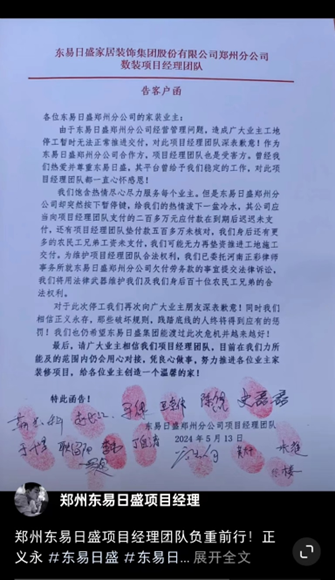 东易日盛家居装饰集团股份有限公司郑州分公司
数装项目经理团队
告客户函
各位东易日盛郑州分公司的家装业主：
由于东易日盛郑州分公司经营管理问题，造成广大业主工地
停工暂时无法正常推进交付，对此项目经理团队深表歉意！作为
东易日盛郑州分公司合作方，项目经理团队也是受害方。曾经我
们热爱并尊重东易日盛，其平台曾给予我们稳定的工作，对此项
目经理团队都一直心怀感恩！
我们饱含热情尽心尽力服务每个业主，但是东易日盛郑州分
公司却突然按下暂停键，给我们的热情泼下一盆冷水，其公司应
当向项目经理团队支付的二百多万元应付款在到期后迟迟未支
付，还有项目经理团队垫付款五百多万未核对。我们身后还有更
多的农民工兄弟工资未支付，我们可能无力再垫资推进工地施工
交付。为维护项目经理团队合法权利，我们已委托河南正彩律师
事务所就东易日盛郑州分公司欠付劳务款的事宜提交法律诉讼，
我们将用法律武器维护我们及我们身后百十位农民工兄弟的合
法权利。
对于此次停工我们再次向广大业主朋友深表歉意！同时我们
相信正义永存，那些破坏规则、践踏底线的人终将得到应有的惩
罚！我们也仍希望东易日盛集团能渡过此次危机并越来越好！
最后，请广大业主相信我们项目经理团队，目前在我们力所
能及的范围内仍会用心对接，凭良心做事，努力推进各位业主家
装修项目，给各位业主创造一个温馨的家！
特此函告！
项目经理团队
2024年5月13日
郑州东易日盛项目经理
郑州东易日盛项目经理团队负重前行！正
义永 #东易日盛 #东易日... 展开全文